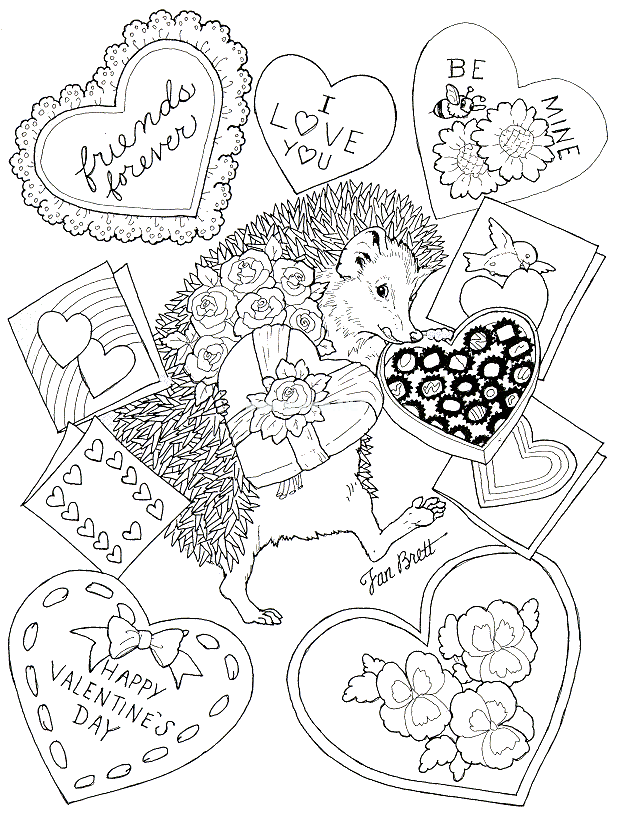 friends
forever
I
LOVE
YOU
BE
MINE
Jan Brett
HAPPY
VALENTINE'S
DAY